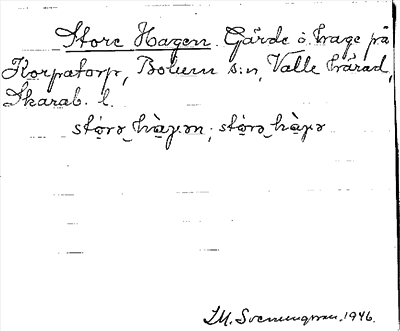 Store Hagen. Gärde o. hage på
Korpatorp, Bolum s:n, Valle härad,
Skarab. l.
stọrə hàgən; stọrə hàgə
I.M. Svenungsson. 1946.